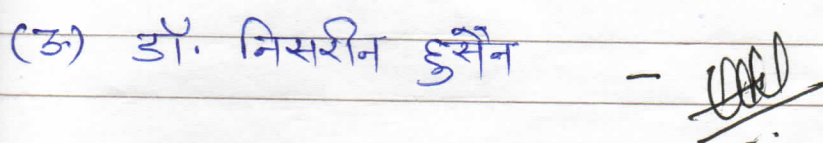 (ऊ) डॉ. निसरीन हुसैन -